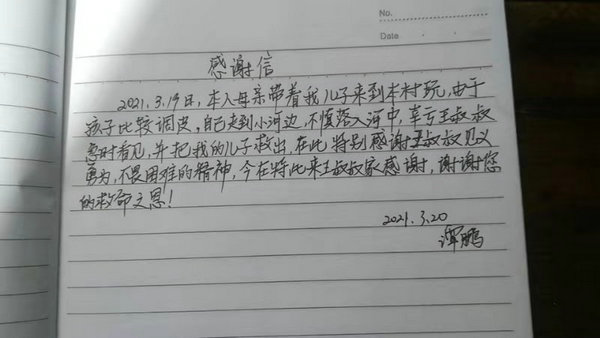 No.
Date
感谢信
2021.3.19日,本人母亲带着我儿子来到本村玩,由于
孩子比较调皮,自己走到小河边,不慎落入河中,幸亏王叔叔
及时看见,并把我的儿子救出,在此特别感谢王叔叔见义
勇为,不畏困难的精神,今在特此来王叔叔家感谢,谢谢您
的救命之恩!
2021.3.20
鹏